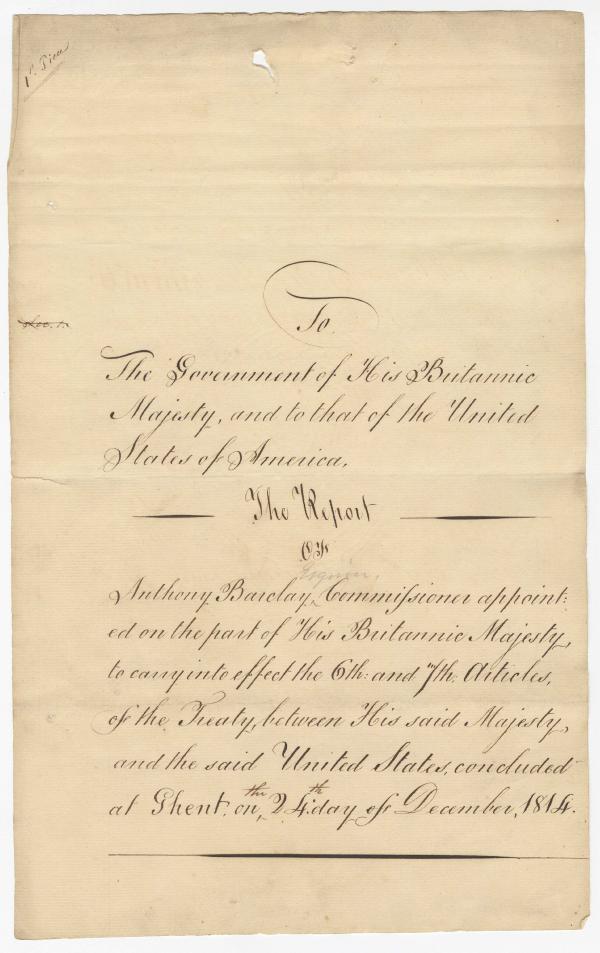 To
The Government of His Britannic
Majesty, and to that of the United
States of America.
The Report
Of
Esquire,
Anthony Barclay, Commissioner appoint:
ed on the part of His Britannic Majesty,
to carry into effect the 6th: and 7th: Articles,
of the Treaty, between His said Majesty,
and the said United States, concluded
at Ghent, on the 24th day of December, 1814.